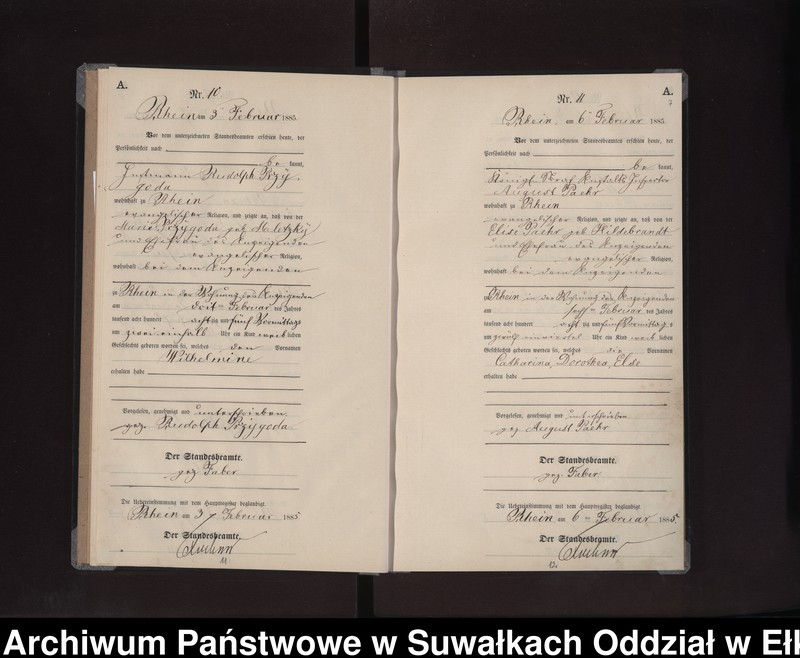 A.
Nr. 10
Rhein am 3ten Februar 1885.
Vor dem unterzeichneten Standesbeamten erschien heute, der
Persönlichkeit nach
be kannt,
Rudolph Przy-
goda
wohnhaft zu Rhein
evangelischer Religion, und zeigte an, daß von der
Marie Przygoda geb.
und Ehefrau des Anzeigenden
evangelischer Religion,
wohnhaft bei dem Anzeigenden
zu Rhein in der Wohnung des Anzeigenden
am Februar des Jahres
tausend acht hundert achtzig und fünf Vormittags
um zwei einhalb Uhr ein Kind weiblichen
Geschlechts geboren worden sei, welches den Vornamen
Wilhelmine
erhalten habe
Vorgelesen, genehmigt und unterschrieben
gez. Rudolph Przygoda
Der Standesbeamte.
gez. Faber
Die Uebereinstimmung mit dem Hauptregister beglaubigt.
Rhein am 3 Februar 1885
Der Standesbeamte.
11
A.
7
Nr. 11
Rhein, am 6ten Februar 1885.
Vor dem unterzeichneten Standesbeamten erschien heute, der
Persönlichkeit nach
be kannt,
Königl. Straf Anstalts Inspector
August Paehr
wohnhaft zu Rhein
evangelischer Religion, und zeigte an, daß von der
Elise Paehr geb. Hildebrandt
und Ehefrau des Anzeigenden
evangelischer Religion,
wohnhaft bei dem Anzeigenden
zu Rhein in der Wohnung des Anzeigenden
am Februar des Jahres
tausend acht hundert achtzig und fünf Vormittags
um Uhr ein Kind weiblichen
Geschlechts geboren worden sei, welches die Vornamen
Catharina, Dorothea, Else
erhalten habe
Vorgelesen, genehmigt und unterschrieben
gez. August Paehr
Der Standesbeamte.
gez. Faber
Die Uebereinstimmung mit dem Hauptregister beglaubigt.
Rhein am 6ten Februar 1885.
Der Standesbeamte.
Archiwum Państwowe w Suwałkach Oddział w Ełk